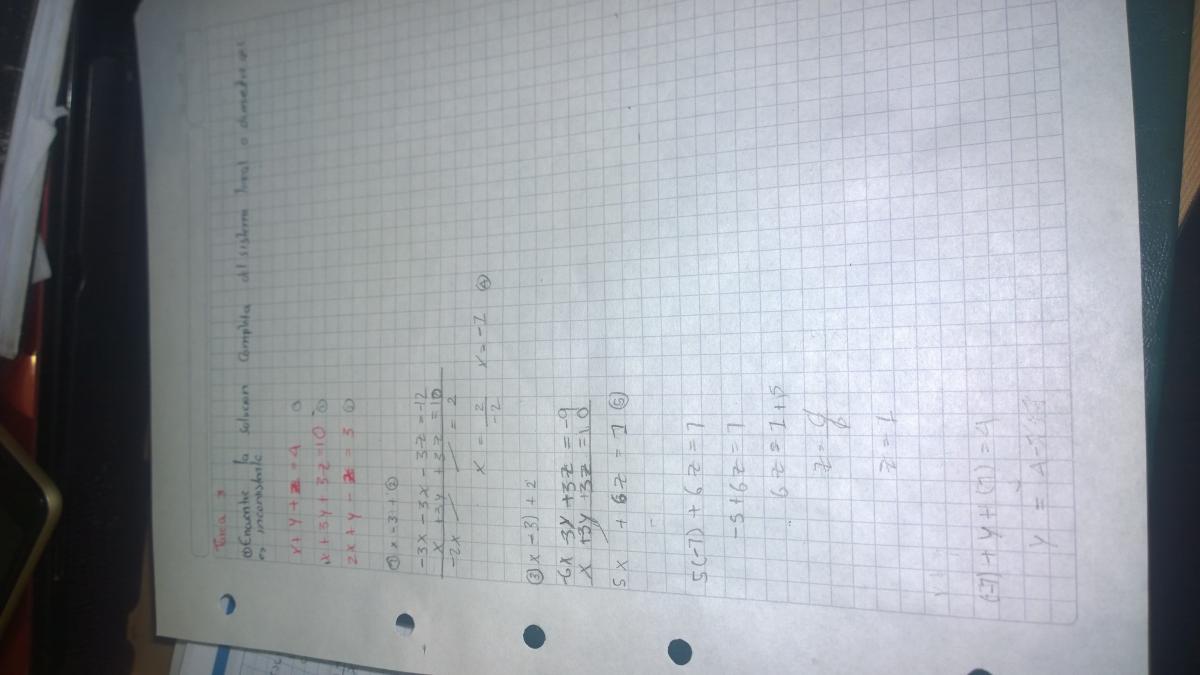 Tarea 3
① Encuentre la solucion Completa del sistema lineal o demuestre que
es inconsistente
x + y + z = 4 ①
x + 3y + 3z = 10 ②
2x + y - z = 3 ③
① x -3 + ②
-3x - 3x - 3z = -12
x + 3y + 3z = 10
-2x = 2
x = 2/-2 x = -1 ④
③ x -3) + 2
-6x 3y + 3z = -9
x +3y +3z = 10
5x + 6z = 1 ⑤
5(-1) + 6z = 1
-5 + 6z = 1
6z = 1 + 5
z = 6/6
z = 1
(-1) + y + (1) = 4